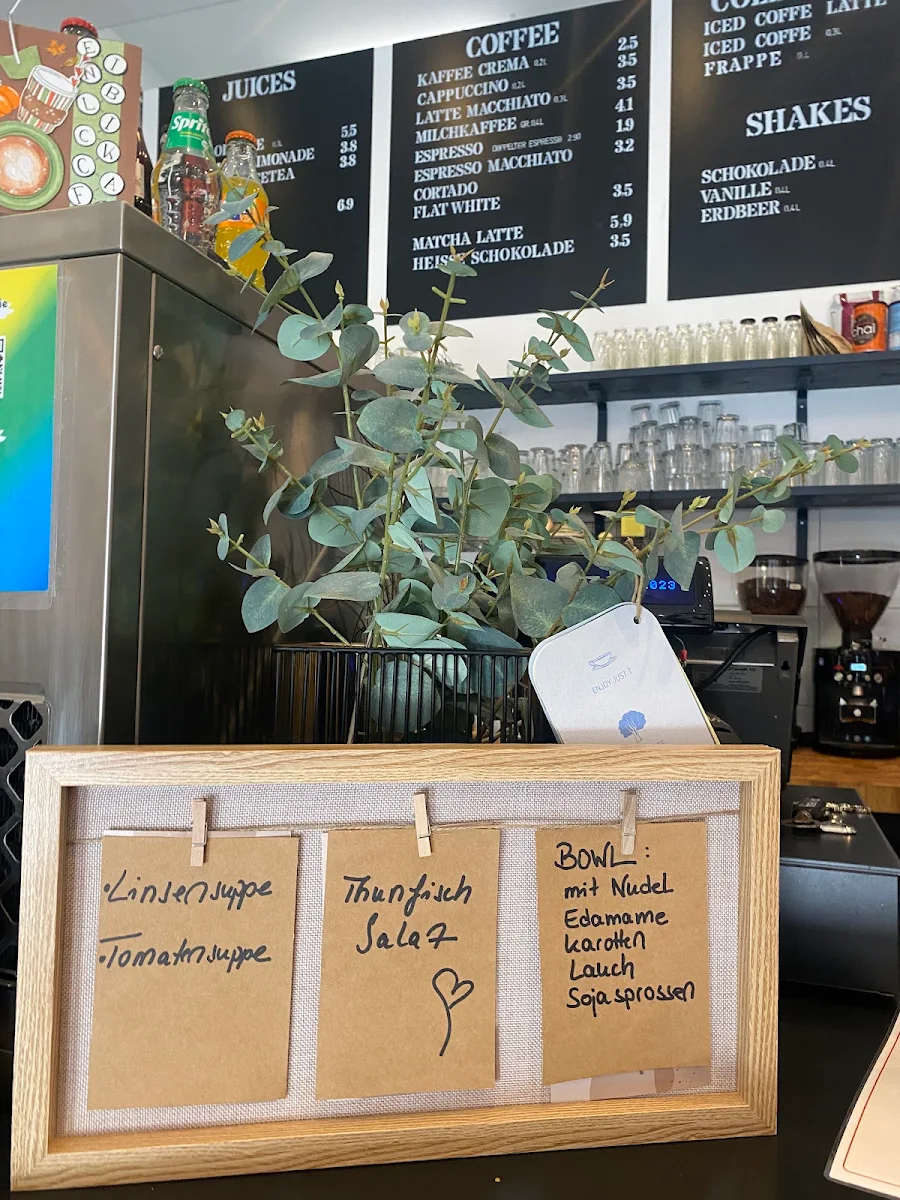 JUICES
5.5
LIMONADE 3.8
ETEA 3.8
6.9
COFFEE
KAFFEE CREMA 0,2L 2.5
CAPPUCCINO 0,2L 3.5
LATTE MACCHIATO 0,3L 3.5
MILCHKAFFEE GR. 0,4L 4.1
ESPRESSO DOPPELTER ESPRESSO 2.90 1.9
ESPRESSO MACCHIATO 3.2
CORTADO
FLAT WHITE 3.5
MATCHA LATTE 5.9
HEISSE SCHOKOLADE 3.5
ICED COFFE LATTE
ICED COFFE 0,3L
FRAPPE
SHAKES
SCHOKOLADE 0,4L
VANILLE 0,4L
ERDBEER 0,4L
Sprit
chai
023
ENJOY JUST
•Linsensuppe
•Tomatensuppe
Thunfisch
Salat
BOWL:
mit Nudel
Edamame
karotten
Lauch
Sojasprossen